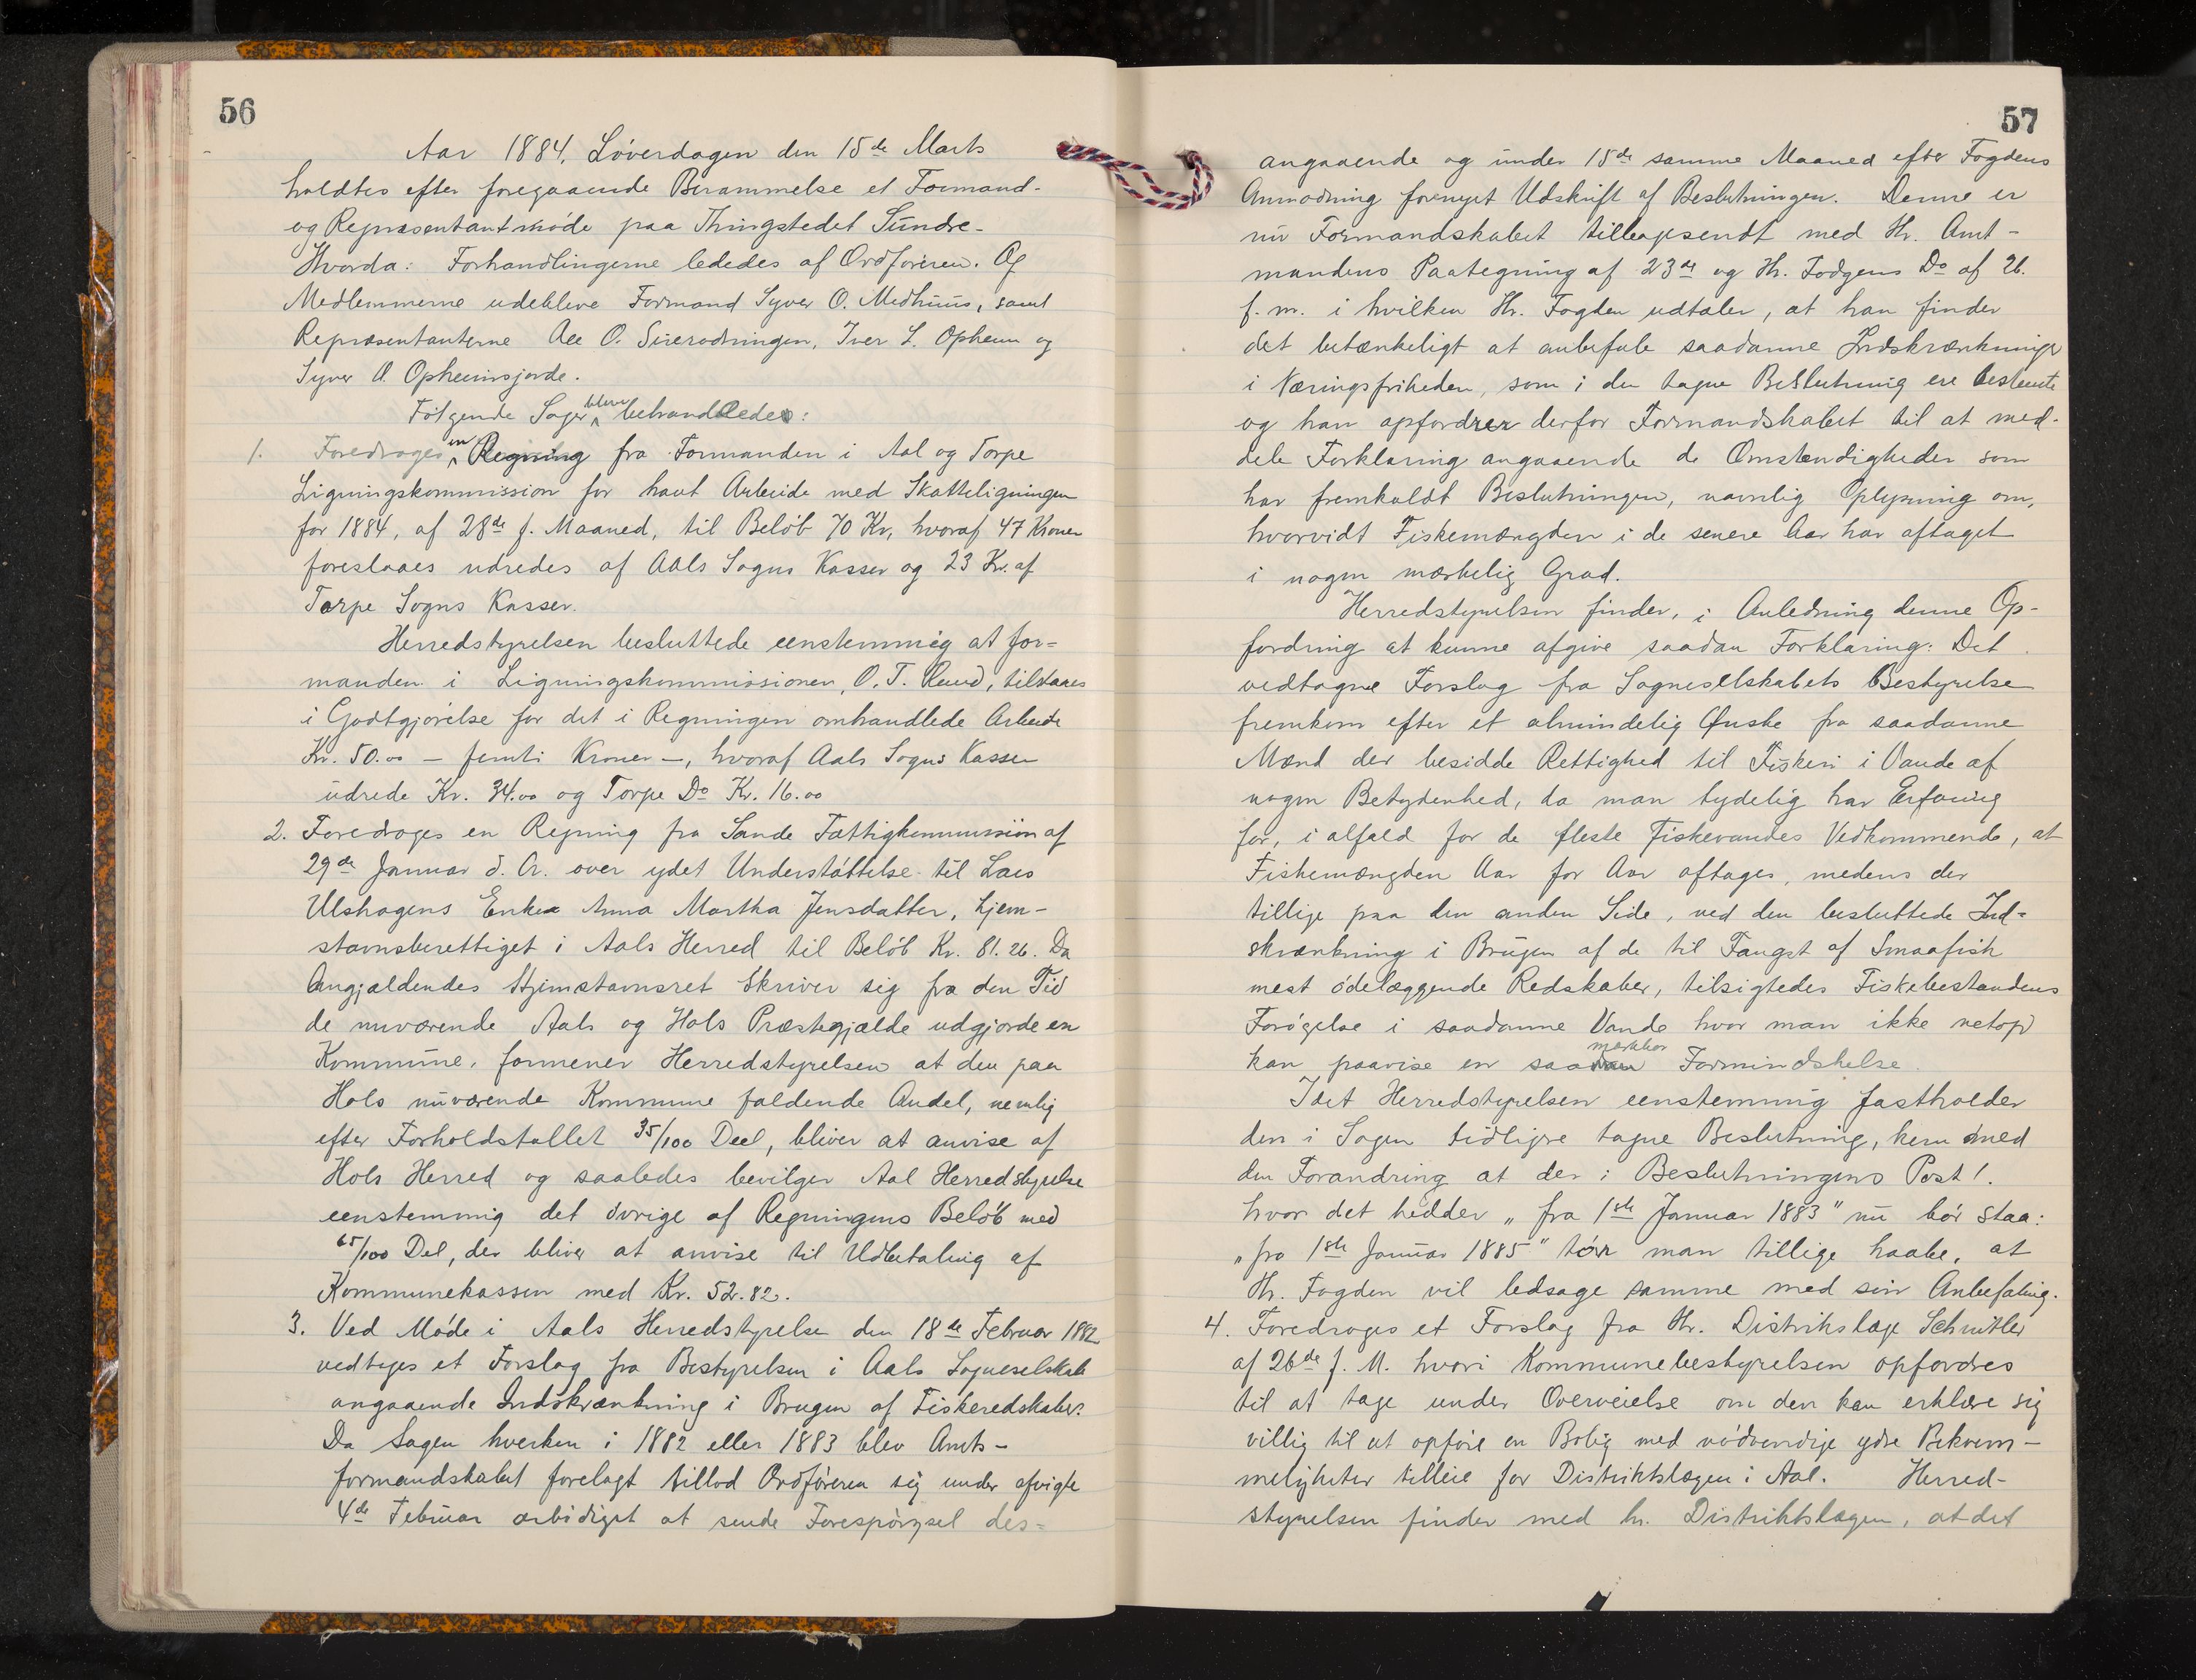 56
Aar 1884, Löverdagen den 15de Marts
holdtes efter foregaaende Berammelse et Formand-
og Repræsentantmöde paa Thingstedet Sundre-
Hvorda: Forhandlingerne lededes af Ordföreren. Af
Medlemmerne udebleve Formand Syver O. Medhuus, samt
Repræsentanterne O. Iver L. Opheim og
Syver A. Opheimsjorde.
Følgende Sager bleve behandlede:
1. Foredroges en Regning fra Formanden i Aal og Torpe
Ligningskommission for havt Arbeide med Skatteligningen
for 1884, af 28de f. Maaned, til Beløb 70 Kr, hvoraf 47 Kroner
foreslaaes udredes af Aals Sogns Kasse og 23 Kr. af
Torpe Sogns Kasser.
Herredstyrelsen besluttede eenstemmig at for=
manden i Ligningskommissionen, O. T. Ruud, tilstaaes
i Godtgjörelse for det i Regningen omhandlede Arbeide
Kr. 50.00 — femti Kroner —, hvoraf Aals Sogns Kasse
udrede Kr. 34.00 og Torpe Do Kr. 16.00
2. Foredroges en Regning fra Sande Fattigkommission af
29de Januar d. A. over ydet Understöttelse til Lars
Ulshagens Enke Anna Martha Jensdatter, hjem-
stavnsberettiget i Aals Herred til Belöb Kr. 81.26. Da
Angjældendes Hjemstavnsret skriver sig fra den Tid
de nuværende Aals og Hols Præstegjælde udgjorde en
Kommune, formener Herredstyrelsen at den paa
Hols nuværende Kommune faldende Andel, nemlig
efter Forholdstallet 35/100 Deel, bliver at anvise af
Hols Herred og saaledes bevilger Aal Herredstyrelse
eenstemmig det övrige af Regningens Belöb med
65/100 Del, der bliver at anvise til Udbetaling af
Kommunekassen med Kr. 52.82.
3. Ved Möde i Aals Herredstyrelse den 18de Februar 1882
vedtoges et Forslag fra Bestyrelsen i Aals Sogneselskab
angaaende Indskrænkning i Brugen af Fiskeredskaber.
Da Sagen hverken i 1882 eller 1883 blev Amts-
formandskabet forelagt tillod Ordföreren sig under afvigte
4de Februar ærbödigst at sende Forespörgsel des=
57
angaaende og under 15de samme Maaned efter Fogdens
Anmodning fornyet Udskrift af Beslutningen. Denne er
nu Formandskabet tilbagesendt med Hr. Amt-
mandens Paategning af 23de og Hr. Fodgens Do af 26.
f. m. i hvilken Hr. Fogden udtaler, at han finder
det betænkeligt at anbefale saadanne Indskrænkninger
i Næringsfriheden, som i den tagne Beslutning ere bestemte
og han opfordrer derfor Formandskabet til at med-
dele Forklaring angaaende de Omstendigheder som
har fremkaldt Beslutningen, navnlig Oplysning om,
hvorvidt Fiskemængden i de senere Aar har aftaget
i nogen mærkelig Grad.
Herredstyrelsen finder, i Anledning denne Op-
fordring at kunne afgive saadan Forklaring: Det
vedtagne Forslag fra Sogneselskabets Bestyrelse
fremkom efter et almindelig Ønske fra saadanne
Mænd der besidde Rettighed til Fiskeri i Vande af
nogen Betydenhed, da man tydelig har Erfaring
for, i alfald for de fleste Fiskevandes Vedkommende, at
Fiskemængden Aar for Aar aftager, medens der
tillige paa den anden Side, ved den besluttede Ind=
skrænkning i Brugen af de til Fangst af Smaafisk
mest ödelæggende Redskaber, tilsigtedes Fiskebestandens
Forögelse i saadanne Vande hvor man ikke netop
kan paavise en saadan mærkbar Formindskelse.
Idet Herredstyrelsen eenstemmig fastholder
den i Sagen tidligre tagne Beslutning, kun med
den Forandring at der i Beslutningens Post 1.
hvor det hedder „fra 1ste Januar 1883" nu bör staa:
„fra 1ste Januar 1885" tör man tillige haabe, at
Hr. Fogden vil ledsage samme med sin Anbefaling.
4. Foredroges et Forslag fra Hr. Distrikslæge Schnitler
af 26de f. M. hvori Kommunebestyrelsen opfordres
til at tage under Overveielse om den kan erklære sig
villig til at opföre en Bolig med nödvendige ydre Bekvem-
meligheter tilleie for Distriktslægen i Aal. Herred-
styrelsen finder med hr. Distriktslægen, at det